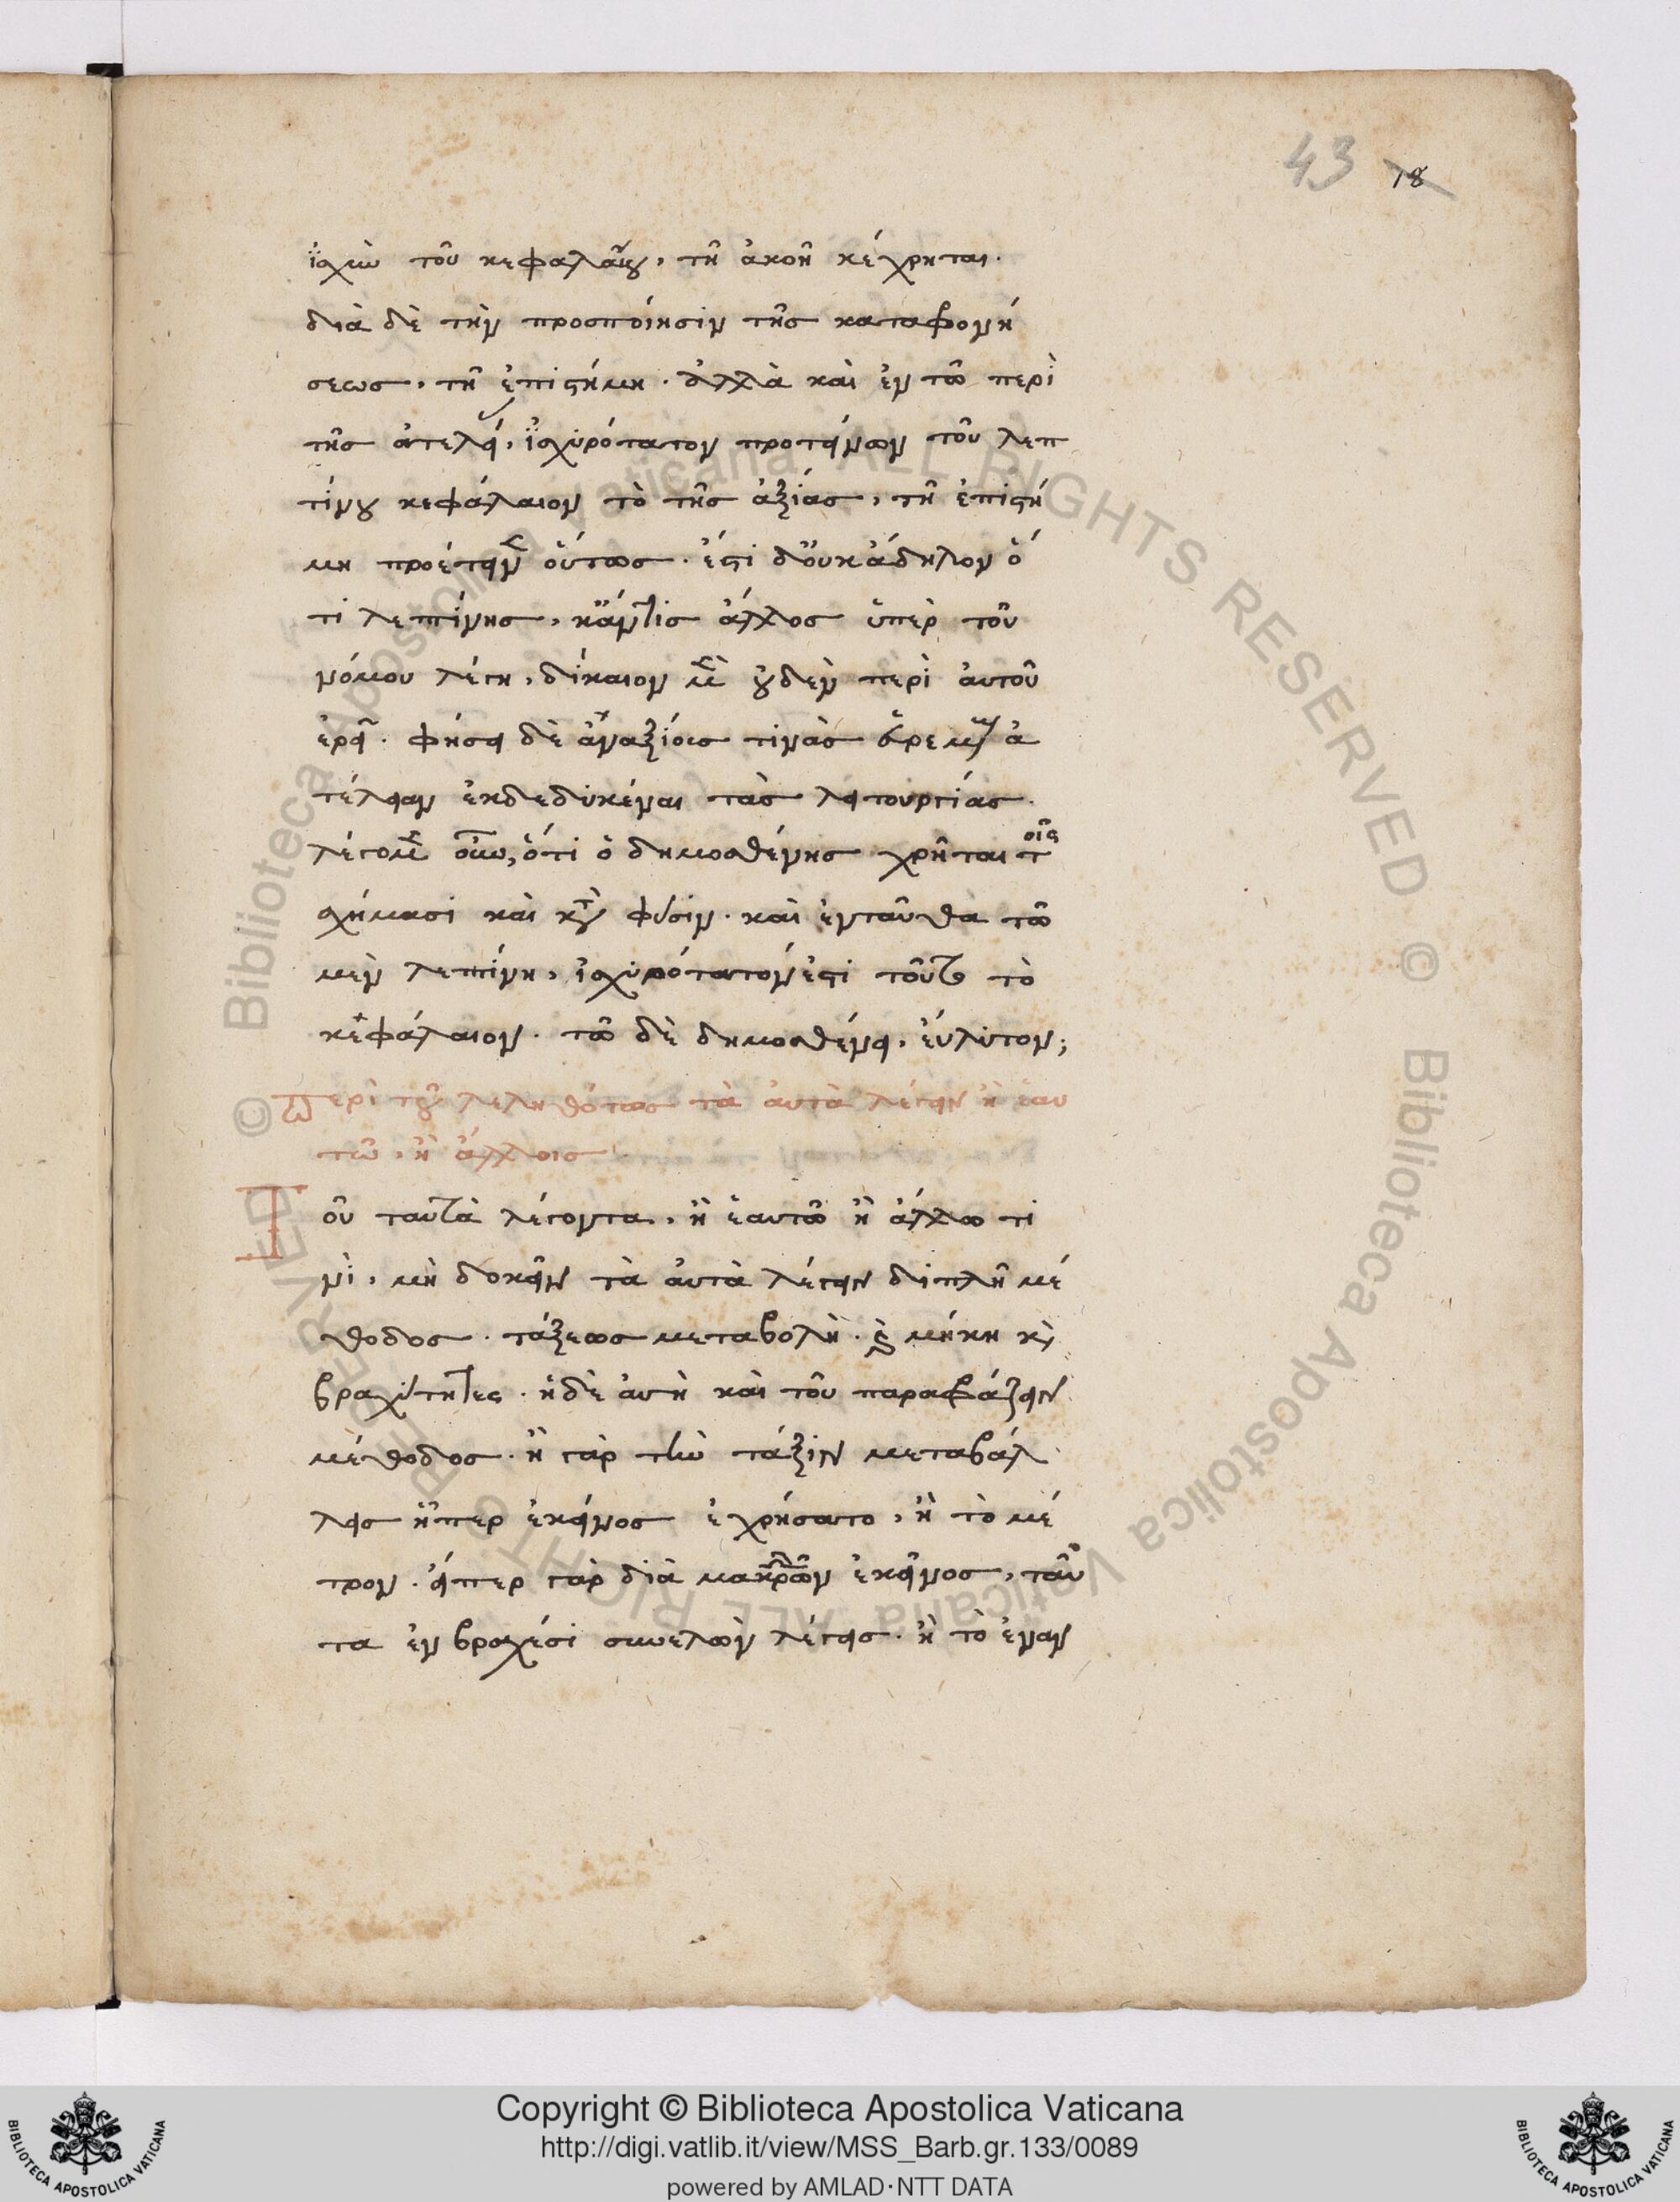 43 18
ἰσχὺν τοῦ κεφαλαίου, τῆ ἀκοῆ κέχρηται.
διὰ δὲ τὴν προσποίησιν τῆς καταφρονή
σεως, τῆ ἐπιστήμη. ἀλλὰ καὶ ἐν τῶ περὶ
τῆς ἀτελεί, ἰσχυρότατον προτείνων τοῦ λεπ
τίνου κεφάλαιον τὸ τῆς ἀξίας, τῆ ἐπιστή
μη προέτεινεν οὕτως. ἔστι δ' οὐκ ἄδηλον ὅ
τι λεπτίνης, κἄν τις ἄλλος ὑπὲρ τοῦ
νόμου λέγη, δίκαιον μὲν οὐδὲν περὶ αὐτοῦ
ἐρεῖ. φήσει δὲ ἀναξίους τινὰς εὑρεμένους ἀ
τέλειαν ἐκδεδυκέναι τὰς λειτουργίας.
λέγομεν οὖν, ὅτι ὁ δημοσθένης χρῆται τοῖς
σχήμασι καὶ κατὰ φύσιν. καὶ ἐνταῦθα τῶ
μὲν λεπτίνη, ἰσχυρότατόν ἐστι τοῦτο τὸ
κεφάλαιον. τῶ δὲ δημοσθένει, εὔλυτον;
Περὶ τοῦ λεληθότως τὰ αὐτὰ λέγειν ἢ ἑαυ
τῶ, ἢ ἄλλοις
Τοῦ ταυτὰ λέγοντα, ἢ ἑαυτῶ ἢ ἄλλω τι
νὶ, μὴ δοκεῖν τὰ αὐτὰ λέγειν διπλῆ μέ
θοδος. τάξεως μεταβολὴ. καὶ μήκη καὶ
βραχύτητες. ἡ δὲ αὐτὴ καὶ τοῦ παραφράζειν
μέθοδος. ἢ γὰρ τὴν τάξιν μεταβάλ
λεις ἧπερ ἐκεῖνος ἐχρήσατο, ἢ τὸ μέ
τρον. εἴπερ γὰρ διὰ μακρῶν ἐκεῖνος, ταῦ
τα ἐν βραχέσι συνελὼν λέγεις. ἢ τὸ ἐναν
Copyright © Biblioteca Apostolica Vaticana
http://digi.vatlib.it/view/MSS_Barb.gr.133/0089
powered by AMLAD·NTT DATA